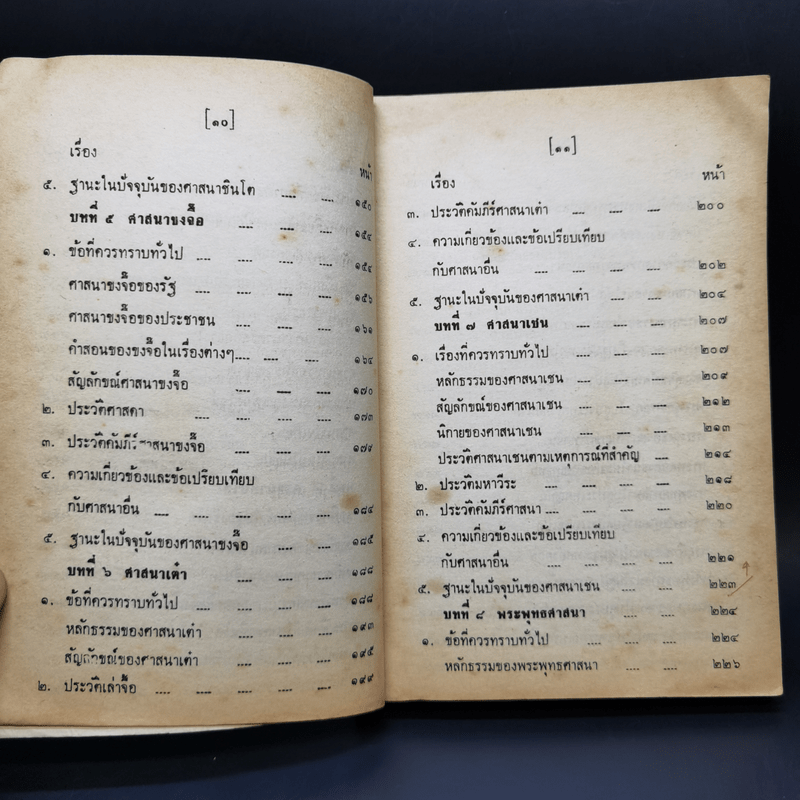 [๑๐]
เรื่อง หน้า
๕. ฐานะในปัจจุบันของศาสนาชินโต .... .... ๑๕๐
บทที่ ๕ ศาสนาขงจื๊อ .... .... .... ๑๕๔
๑. ข้อที่ควรทราบทั่วไป .... .... .... .... ๑๕๔
ศาสนาขงจื๊อของรัฐ .... .... .... .... ๑๕๖
ศาสนาขงจื๊อของประชาชน .... .... .... ๑๖๑
คำสอนของขงจื๊อในเรื่องต่างๆ .... .... .... ๑๖๔
สัญลักขณ์ศาสนาขงจื๊อ .... .... .... ๑๗๐
๒. ประวัติศาสดา .... .... .... .... ๑๗๓
๓. ประวัติคัมภีร์ศาสนาขงจื๊อ .... .... .... ๑๗๙
๔. ความเกี่ยวข้องและข้อเปรียบเทียบ
กับศาสนาอื่น .... .... .... .... .... ๑๘๔
๕. ฐานะในปัจจุบันของศาสนาขงจื๊อ .... .... ๑๘๕
บทที่ ๖ ศาสนาเต๋า .... .... .... ๑๘๘
๑. ข้อที่ควรทราบทั่วไป .... .... .... .... ๑๘๘
หลักธรรมของศาสนาเต๋า .... .... .... ๑๙๓
สัญลักขณ์ของศาสนาเต๋า .... .... .... ๑๙๕
๒. ประวัติเล่าจื๊อ .... .... .... .... .... ๑๙๙
[๑๑]
เรื่อง หน้า
๓. ประวัติคัมภีร์ศาสนาเต๋า .... .... .... ๒๐๐
๔. ความเกี่ยวข้องและข้อเปรียบเทียบ
กับศาสนาอื่น .... .... .... .... ๒๐๒
๕. ฐานะในปัจจุบันของศาสนาเต๋า .... .... ๒๐๔
บทที่ ๗ ศาสนาเชน .... .... .... ๒๐๗
๑. เรื่องที่ควรทราบทั่วไป .... .... .... ๒๐๗
หลักธรรมของศาสนาเชน .... .... .... ๒๐๙
สัญลักษณ์ของศาสนาเชน .... .... .... ๒๑๒
นิกายของศาสนาเชน .... .... .... ๒๑๓
ประวัติศาสนาเชนตามเหตุการณ์ที่สำคัญ .... ๒๑๔
๒. ประวัติมหาวีระ .... .... .... .... ๒๑๘
๓. ประวัติคัมภีร์ศาสนา .... .... .... .... ๒๒๐
๔. ความเกี่ยวข้องและข้อเปรียบเทียบ
กับศาสนาอื่น .... .... .... .... ๒๒๑
๕. ฐานะในปัจจุบันของศาสนาเชน .... .... ๒๒๓
บทที่ ๘ พระพุทธศาสนา .... .... ๒๒๔
๑. ข้อที่ควรทราบทั่วไป .... .... .... ๒๒๔
หลักธรรมของพระพุทธศาสนา .... .... ๒๒๖